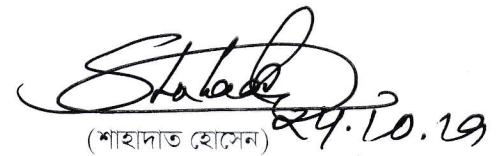 Shahadat
২৮.১০.১৯
(শাহাদাত হোসেন)